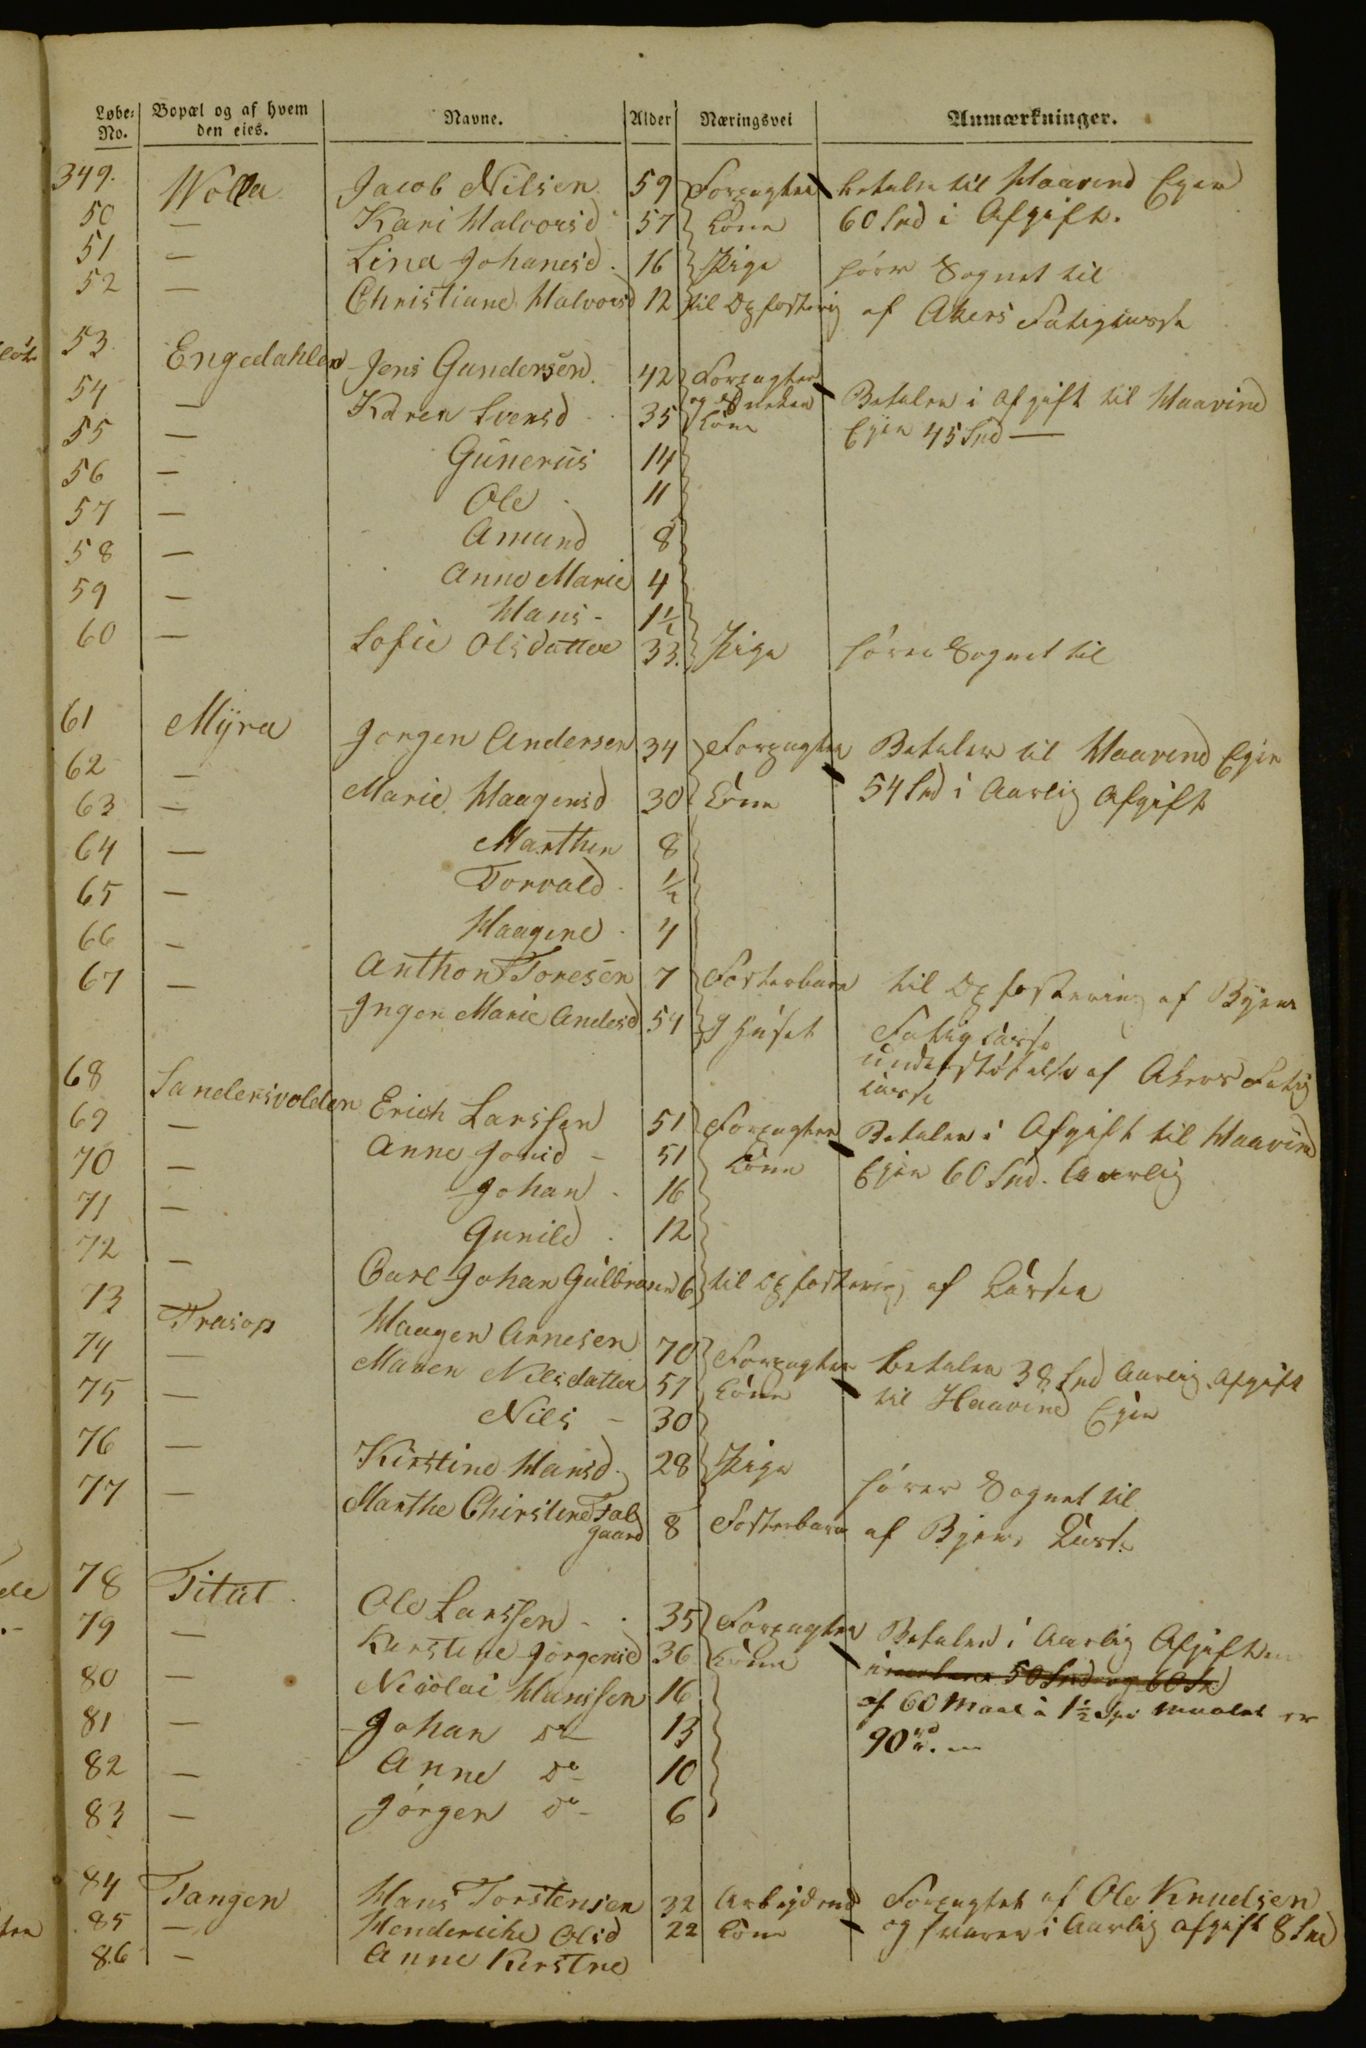 Løbe-No. Bopæl og af hvem den eies. Navne. Alder Næringsvei Anmærkninger.
349. Wolla Jacob Nilsen 59 Forpagter betaler til Haavind Egen
50 — Kari Halvorsd 57 kone 60 Spd i Afgift.
51 — Lina Johanesd. 16 Pige hører Sognet til
52 — Christiane Halvorsd 12 til Opfostrig af Akers Fatigkasse
53 Engedahlen Jens Gundersen. 42 Forpagter
54 — Karen Svensd 35 kone Betaler i Afgift til Haavind
55 — Gunerius 14 Egen 45 Spd —
56 — Ole 11
57 — Amund 8
58 — Anne Marie 4
59 — Hans - 1½
60 — Sofie Olsdatter 33. Pige hører Sognet til
61 Myra Jorgen Andersen 34 Forpagter Betaler til Haavind Egen
62 — Marie Haagensd 30 kone 54 Spd i Aarlig Afgift
63 — Marthin 8
64 — Torvald ½
65 — Haagine 4
66 — Anthon Toresen 7 Fosterbarn til Opfostering af Byens
Fatigkasse
67 — Inger Marie Andersd 54 I huset understøtelse af Akers Fatig
kasse
68 Sandersvolden Erich Larssen 51 Forpagter Betaler i Afgift til Haavind
69 — Anne Jonsd - 51 kone Egen 60 Spd. Aarlig
70 — Johan 16
71 — Gunild 12
72 — Carl Johan Gulbransen 6 til Opfostering af
73 Trasop Haagen Arnesen 70 Forpagter betaler 38 Spd Aarlig Afgift
74 — Maren Nilsdatter 57 kone til Haavind Egen
75 — Nils - 30
76 — Kirstine Hansd. 28 Pige hører Sognet til
77 — Marthe Chirstine Fal
gaard 8 Fosterbarn af Byens
78 Titut Ole Larssen - 35 Forpagter Betaler i Aarlig Afgift
79 — Kirstine Jørgensd 36 kone 50 Spd og 60
80 — Nicolai Hanssen 16 af 60 Maal a 1½ Spd Maalet er
81 — Johan do 13 90
82 — Anne do 10
83 — Jørgen do 6
84 Tangen Hans Torstensen 32 Arbeydsmd Forpagtet af Ole Knudsen
85 — Henderiche Olsd 22 kone og svarer i Aarlig afgift 8 Spd
86 — Anne Kirstne